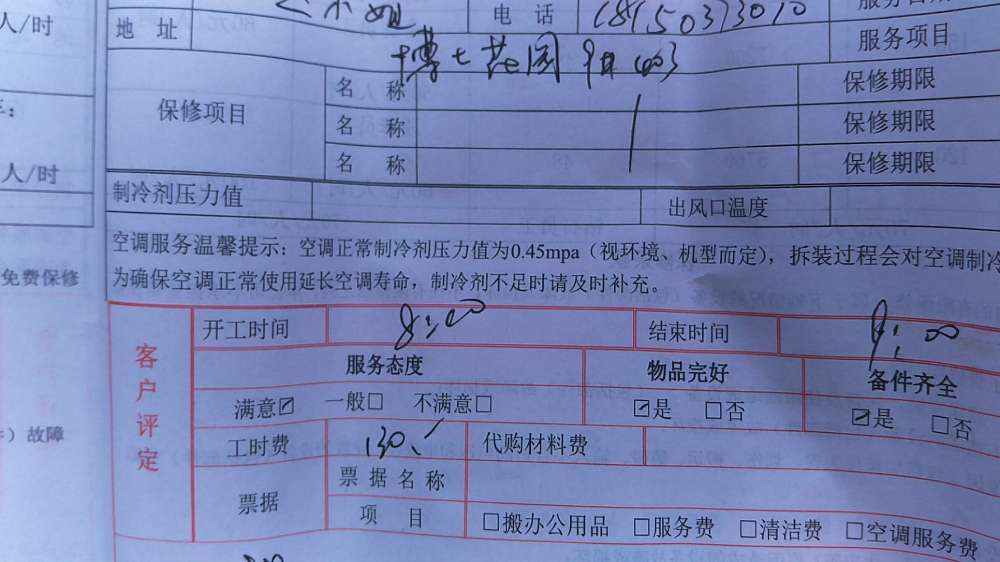 人/时
电 话
地 址
服务项目
保修项目
名 称
保修期限
名 称
保修期限
名 称
保修期限
人/时
制冷剂压力值
出风口温度
空调服务温馨提示：空调正常制冷剂压力值为0.45mpa（视环境、机型而定），拆装过程会对空调制冷
为确保空调正常使用延长空调寿命，制冷剂不足时请及时补充。
免费保修
客户评定
开工时间 8:00
结束时间 9:00
服务态度
物品完好
备件齐全
满意☑ 一般□ 不满意□
☑是 □否
☑是 □否
）故障
工时费 130
代购材料费
票据
票据名称
项 目
□搬办公用品 □服务费 □清洁费 □空调服务费